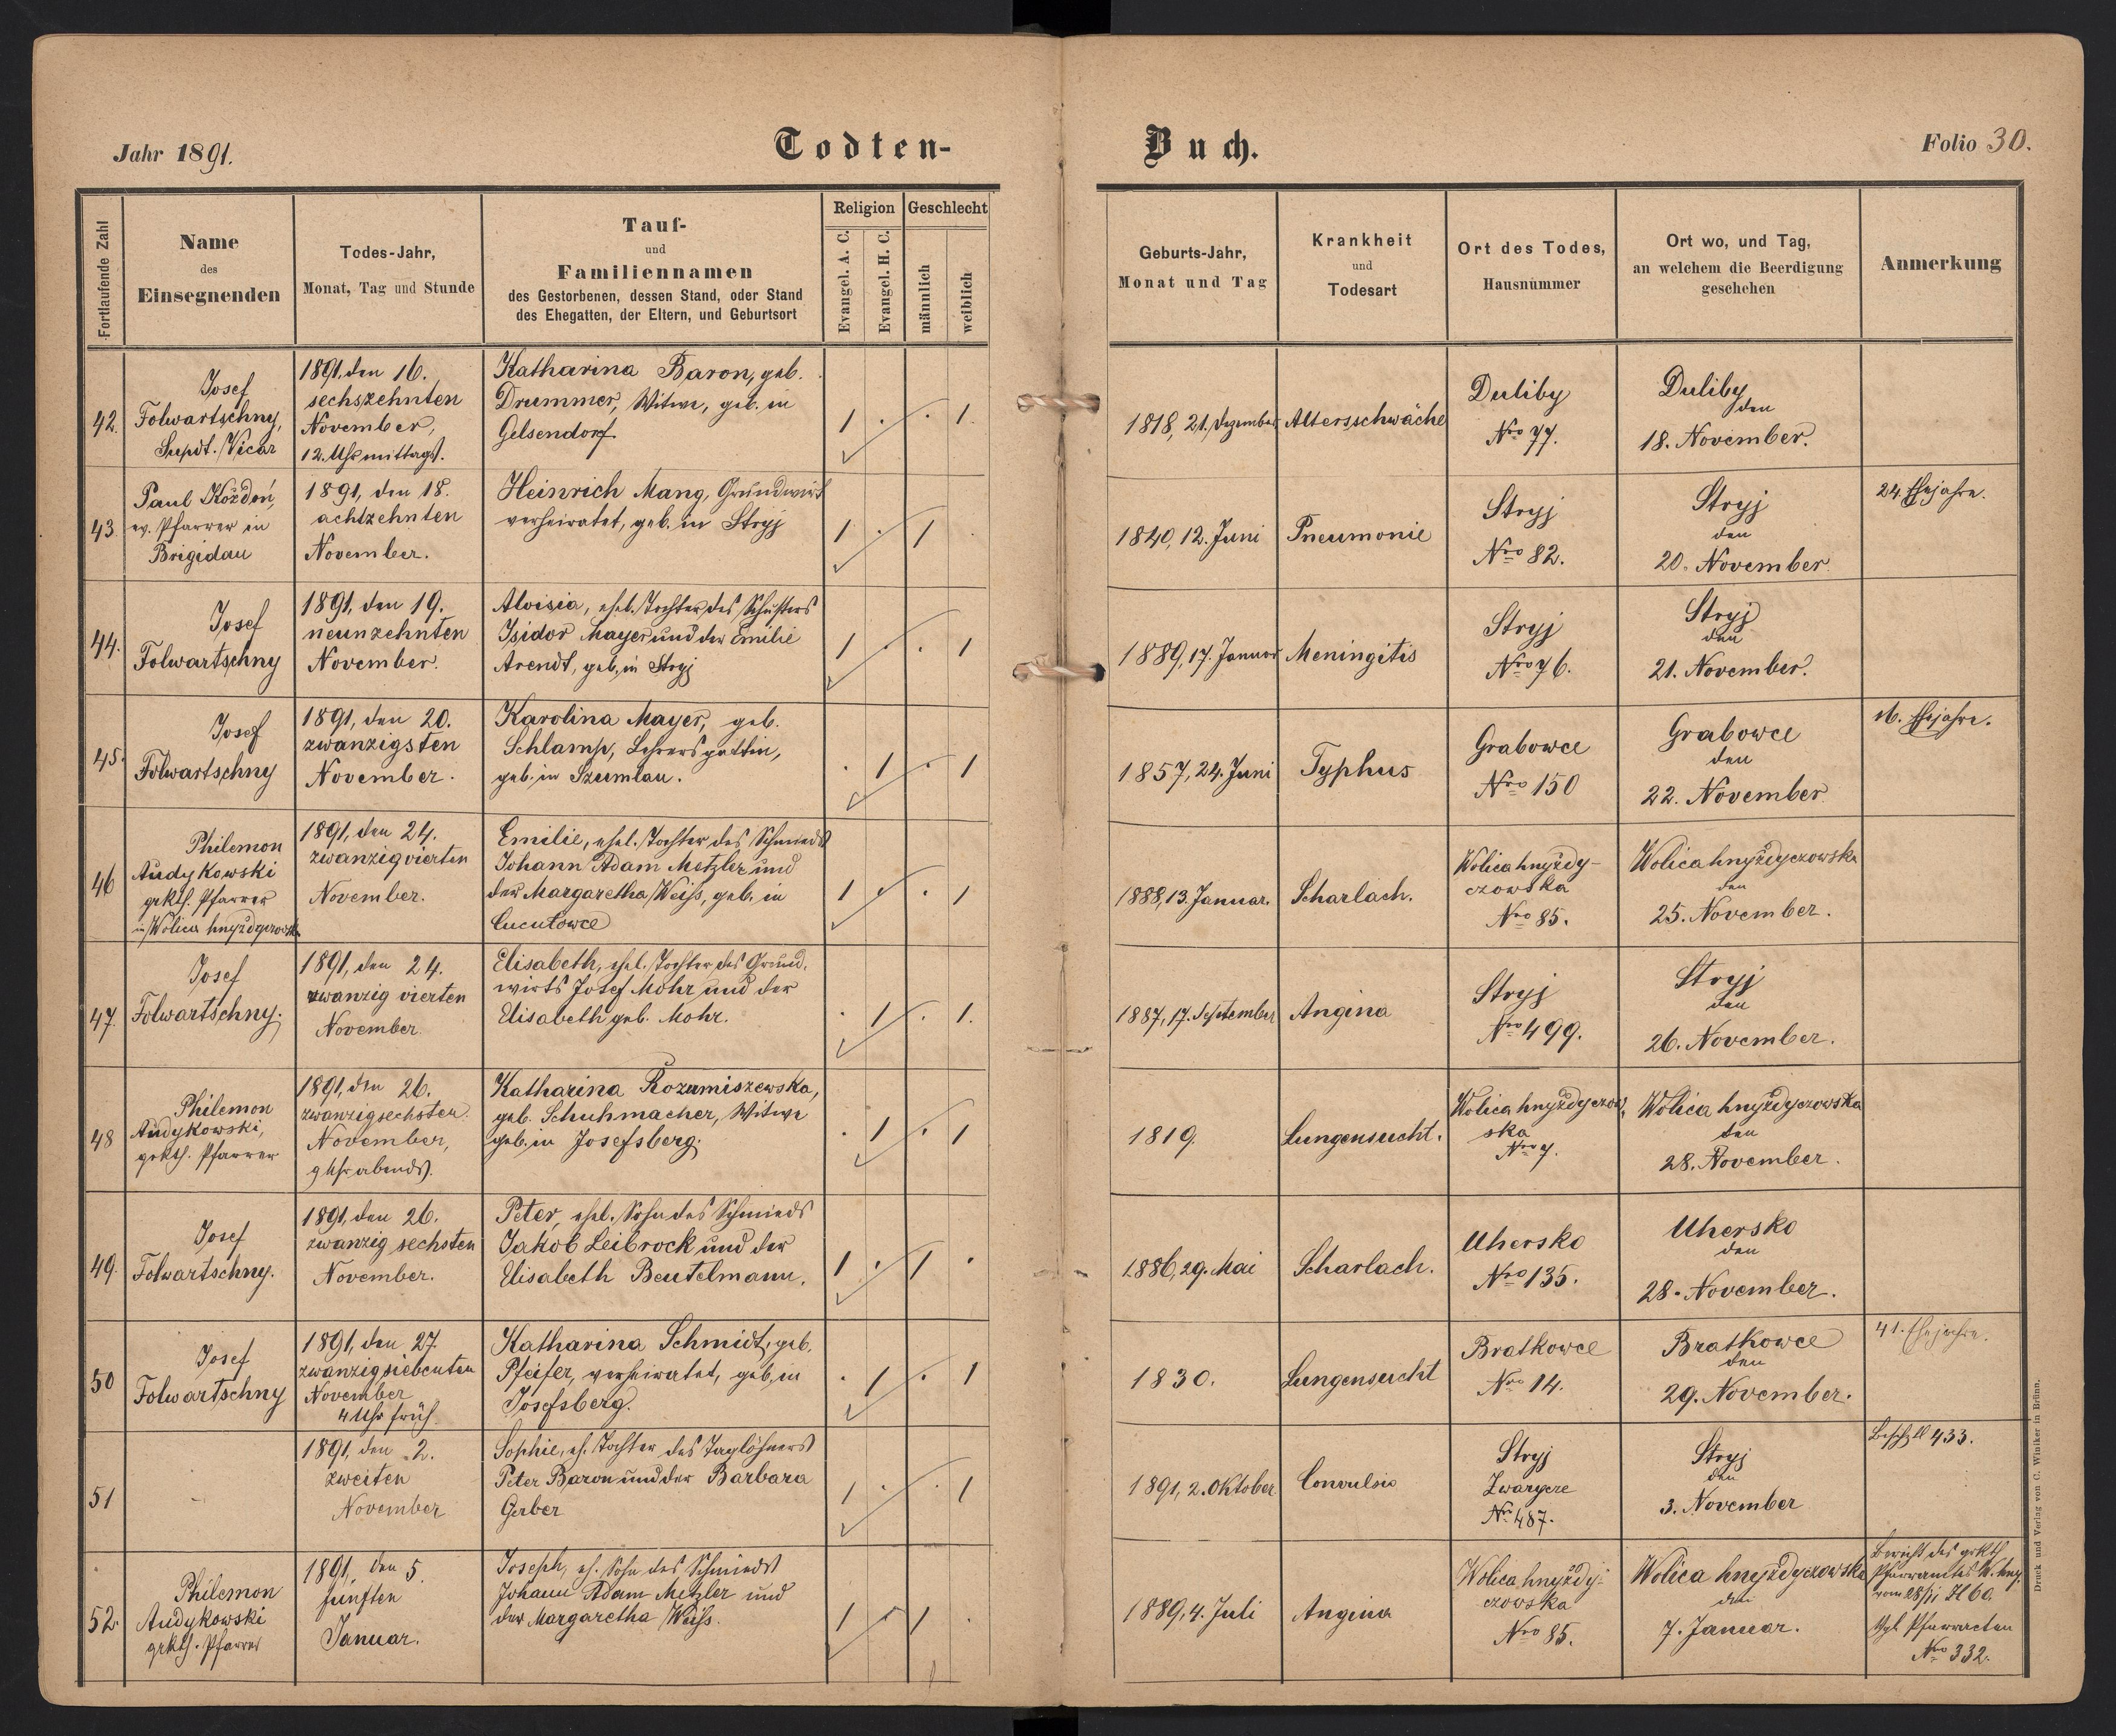 Jahr 1891.
Todten-
Buch.
Folio 30.
Fortlaufende Zahl
Name
des
Einsegnenden
Todes-Jahr,
Monat, Tag und Stunde
Tauf-
und
Familiennamen
des Gestorbenen, dessen Stand, oder Stand
des Ehegatten, der Eltern, und Geburtsort
Religion
Evangel. A. C.
Evangel. H. C.
Geschlecht
männlich
weiblich
Geburts-Jahr,
Monat und Tag
Krankheit
und
Todesart
Ort des Todes,
Hausnummer
Ort wo, und Tag,
an welchem die Beerdigung
geschehen
Anmerkung
42.
Josef
Folwartschny,
Supdt. Vicar
1891, den 16.
sechszehnten
November,
12. Uhr mittags.
Katharina Baron, geb.
Drummer, Witwe, geb. in
Gelsendorf.
1 . . 1.
1818, 21. Dezember
Altersschwäche
Duliby
Nro 77.
Duliby
den
18. November.
43
Paul Kożdoń,
ev. Pfarrer in
Brigidau
1891, den 18.
achtzehnten
November.
Heinrich Mang, Grundwirt
verheiratet, geb. in Stryj
1 . 1 .
1840, 12. Juni
Pneumonie
Stryj
Nro 82.
Stryj
den
20. November.
24. Ehejahre.
44.
Josef
Folwartschny
1891, den 19.
neunzehnten
November.
Aloisia, ehel. Tochter des Schusters
Isidor Mayer und der Emilie
Arendt, geb. in Stryj
1 . . 1
1889, 17. Januar
Meningitis
Stryj
Nro 76.
Stryj
den
21. November.
45.
Josef
Folwartschny
1891, den 20.
zwanzigsten
November.
Karolina Mayer, geb.
Schlamp, Lehrersgattin,
geb. in Szumlau.
. 1 . 1
1857, 24. Juni
Typhus
Grabowce
Nro 150
Grabowce
den
22. November
16. Ehejahre.
46
Philemon
Audykowski
grkth. Pfarrer
in Wolica hnyżdyczowska
1891, den 24.
zwanzigvierten
November.
Emilie, ehel. Tochter des Schmieds
Johann Adam Metzler und
der Margaretha Weiss, geb. in
Cucułowce
1 . . 1
1888, 13. Januar.
Scharlach.
Wolica hnyżdy-
czowska
Nro 85.
Wolica hnyżdyczowska
den
25. November.
47.
Josef
Folwartschny.
1891, den 24.
zwanzig vierten
November.
Elisabeth, ehel. Tochter des Grund-
wirts Josef Mohr und der
Elisabeth geb. Mohr.
. 1 . 1.
1887, 17. September
Angina
Stryj
Nro 499.
Stryj
den
26. November.
48
Philemon
Audykowski,
grkth. Pfarrer
1891, den 26.
zwanzigsechsten
November,
9 Uhr abends.
Katharina Rozumiszewska,
geb. Schuhmacher, Witwe
geb. in Josefsberg.
. 1 . 1
1819.
Lungensucht.
Wolica hnyżdyczow-
ska
Nro 7.
Wolica hnyżdyczowska
den
28. November.
49.
Josef
Folwartschny.
1891, den 26.
zwanzig sechsten
November.
Peter, ehel. Sohn des Schmieds
Jakob Leibrock und der
Elisabeth Beutelmann.
1 . 1 .
1886, 29. Mai
Scharlach.
Uhersko
Nro 135.
Uhersko
den
28. November.
50
Josef
Folwartschny
1891, den 27.
zwanzigsiebenten
November
4 Uhr früh.
Katharina Schmidt, geb.
Pfeifer, verheiratet, geb. in
Josefsberg.
. 1 . 1
1830.
Lungensucht
Bratkowce
Nro 14.
Bratkowce
den
29. November.
41. Ehejahre.
51
1891, den 2.
zweiten
November
Sophie, eh. Tochter des Taglöhners
Peter Baron und der Barbara
Gerber
1 . . 1
1891, 2. Oktober
Convulsio
Stryj
Nro 487.
Stryj
den
3. November
433.
52.
Philemon
Audykowski
grkth. Pfarrer
1891, den 5.
fünften
Januar.
Joseph, eh. Sohn des Schmieds
Johann Adam Metzler und
der Margaretha Weiss.
1 . 1 .
1889, 4. Juli
Angina
Wolica hnyżdy-
czowska
Nro 85.
Wolica hnyżdyczowska
den
7. Januar.
Bericht des grkth.
Pfarramtes W. hny.
vom 28/11 Zl 60.
Vgl. Pfarracten
Nro 332.
Druck und Verlag von C. Winiker in Brünn.